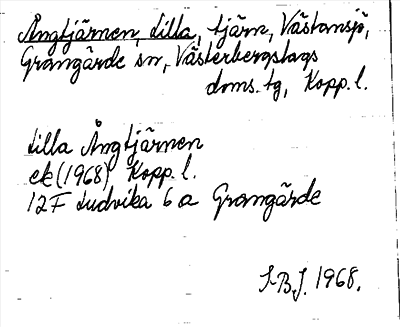 Ångtjärnen, Lilla, tjärn, Västansjö,
Grangärde sn, Västerbergslags
doms. tg, Kopp. l.
Lilla Ångtjärnen
ek (1968) Kopp. l.
12F Ludvika 6 a Grangärde
S.B.J. 1968.